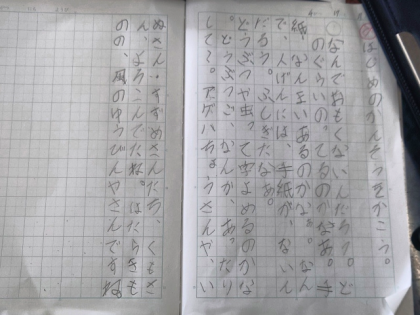 はじめのかんそうをかこう。
なんでおもくないんだろう。ど
のぐらいの
紙、なんまいあるのかな。なん
で、人げんには、手紙が、ないん
だろう。ふしぎだなあ。
どうぶつや虫って字よめるのかな
。どうぶつご、なんかあったり
して？。アゲハちょうさんや、い
ぬさん・すずめさんたち、くもさ
ん、よろこんでたね。
のの、風のゆうびんやさんですね